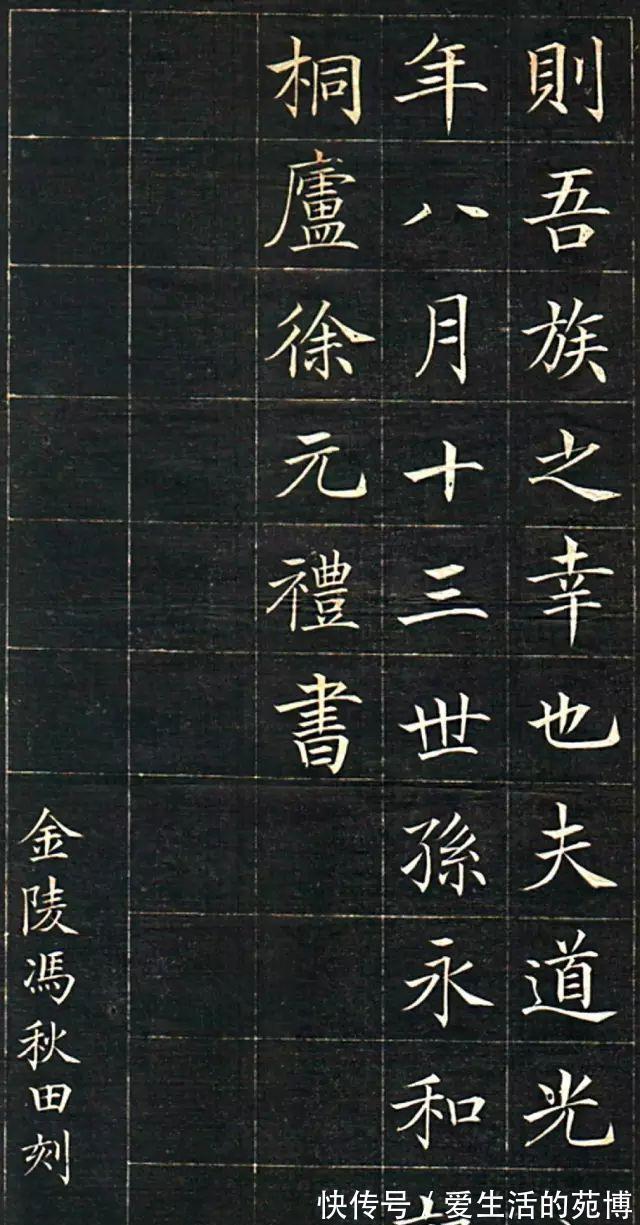 則吾族之幸也夫道光
年八月十三世孫永和
桐廬徐元禮書
金陵馮秋田刻
快传号/爱生活的苑博